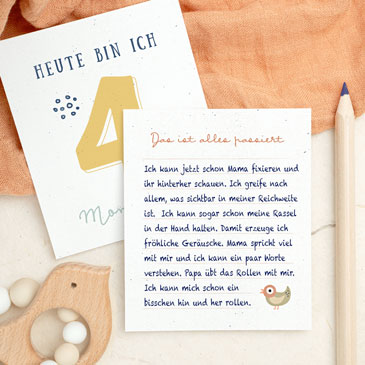 HEUTE BIN ICH
4
Mon
Das ist alles passiert
Ich kann jetzt schon Mama fixieren und
ihr hinterher schauen. Ich greife nach
allem, was sichtbar in meiner Reichweite
ist. Ich kann sogar schon meine Rassel
in der Hand halten. Damit erzeuge ich
fröhliche Geräusche. Mama spricht viel
mit mir und ich kann ein paar Worte
verstehen. Papa übt das Rollen mit mir.
Ich kann mich schon ein
bisschen hin und her rollen.